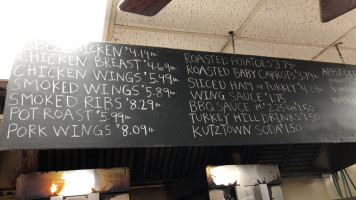 BBQ CHICKEN $4.19 lb
CHICKEN BREAST $4.69 lb
CHICKEN WINGS $5.49 lb
SMOKED WINGS $5.89 lb
SMOKED RIBS $8.29 lb
POT ROAST $5.99 lb
PORK WINGS $8.09 lb
ROASTED POTATOES 3.79
ROASTED BABY CARROTS 3.79 lb
SLICED HAM or TURKEY $4.29
WING SAUCE $1.75
BBQ SAUCE
TURKEY HILL DRINKS 1.50
KUTZTOWN SODA 1.50
APPLE